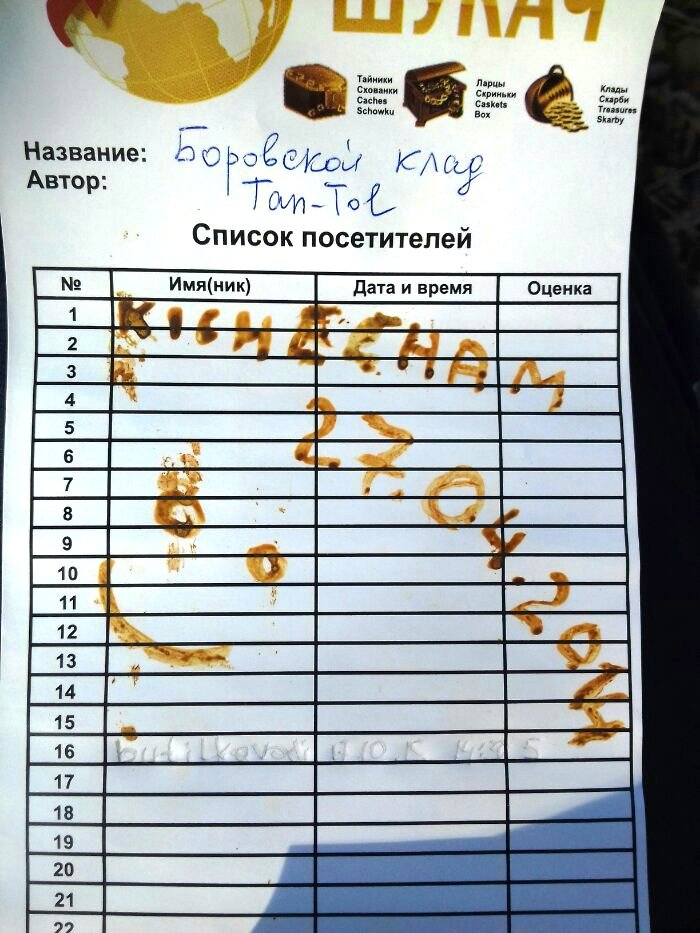 ШУКАЧ
Тайники
Схованки
Caches
Schowku
Ларцы
Скриньки
Caskets
Box
Клады
Скарби
Treasures
Skarby
Название: Боровской клад
Автор: Tan-Tol
Список посетителей
№ Имя(ник) Дата и время Оценка
1
2
3
4
5
6
7
8
9
10
11
12
13
14
15
16
17
18
19
20
21
22
27.04.2014